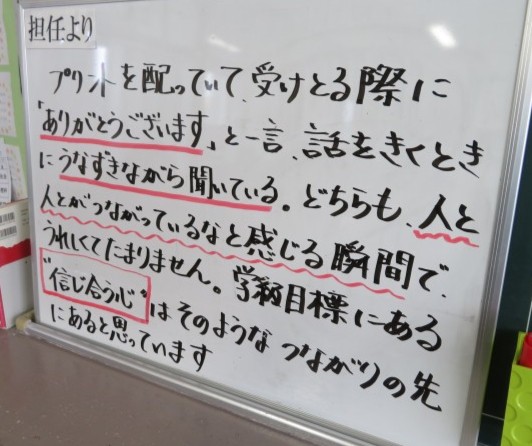 担任より
プリントを配っていて、受けとる際に
「ありがとうございます」と一言、話をきくとき
にうなずきながら聞いている。どちらも、人と
人とがつながっているなと感じる瞬間で、
うれしくてたまりません。学級目標にある
"信じ合う心"はそのようなつながりの先
にあると思っています